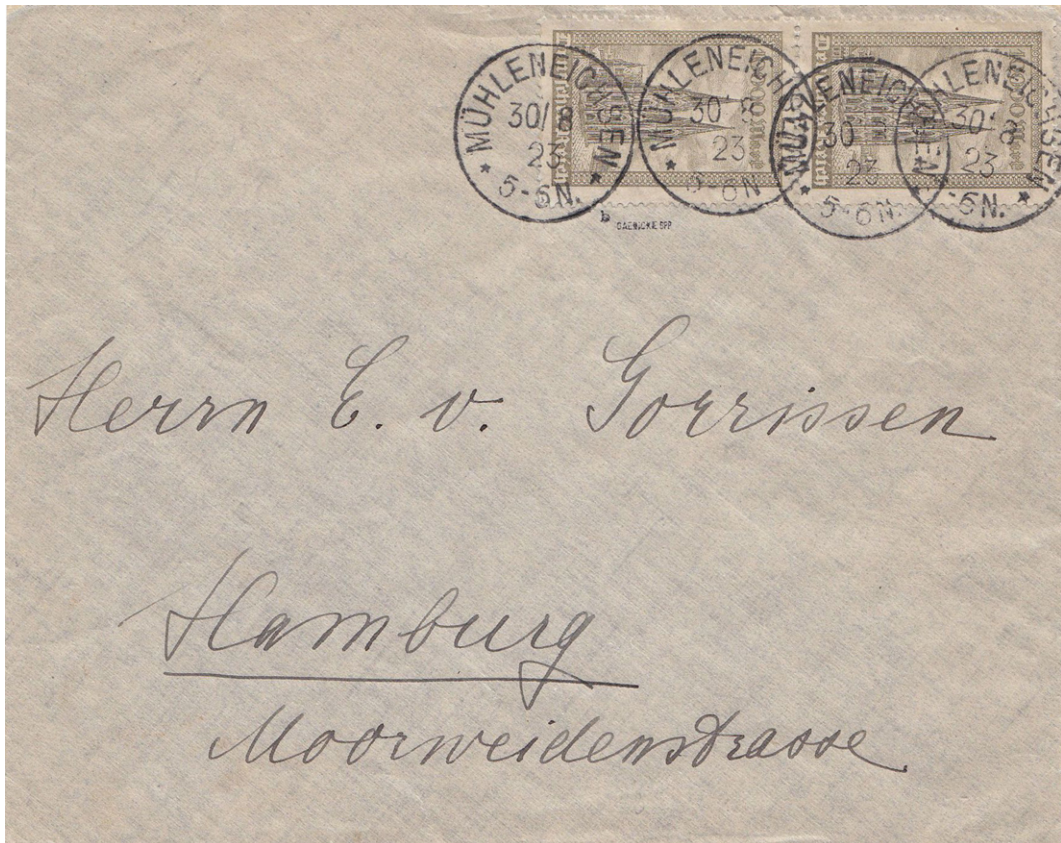 MÜHLENEICHSEN
30/8
23
5-6N.
MÜHLENEICHSEN
30 8
23
5-6N
MÜHLENEICHSEN
30
23
5-6N.
MÜHLENEICHSEN
30 8
23
-6N.
Deutsches Reich
Deutsches Reich
b
Herrn E. v. Gorrissen
Hamburg
Moorweidenstrasse